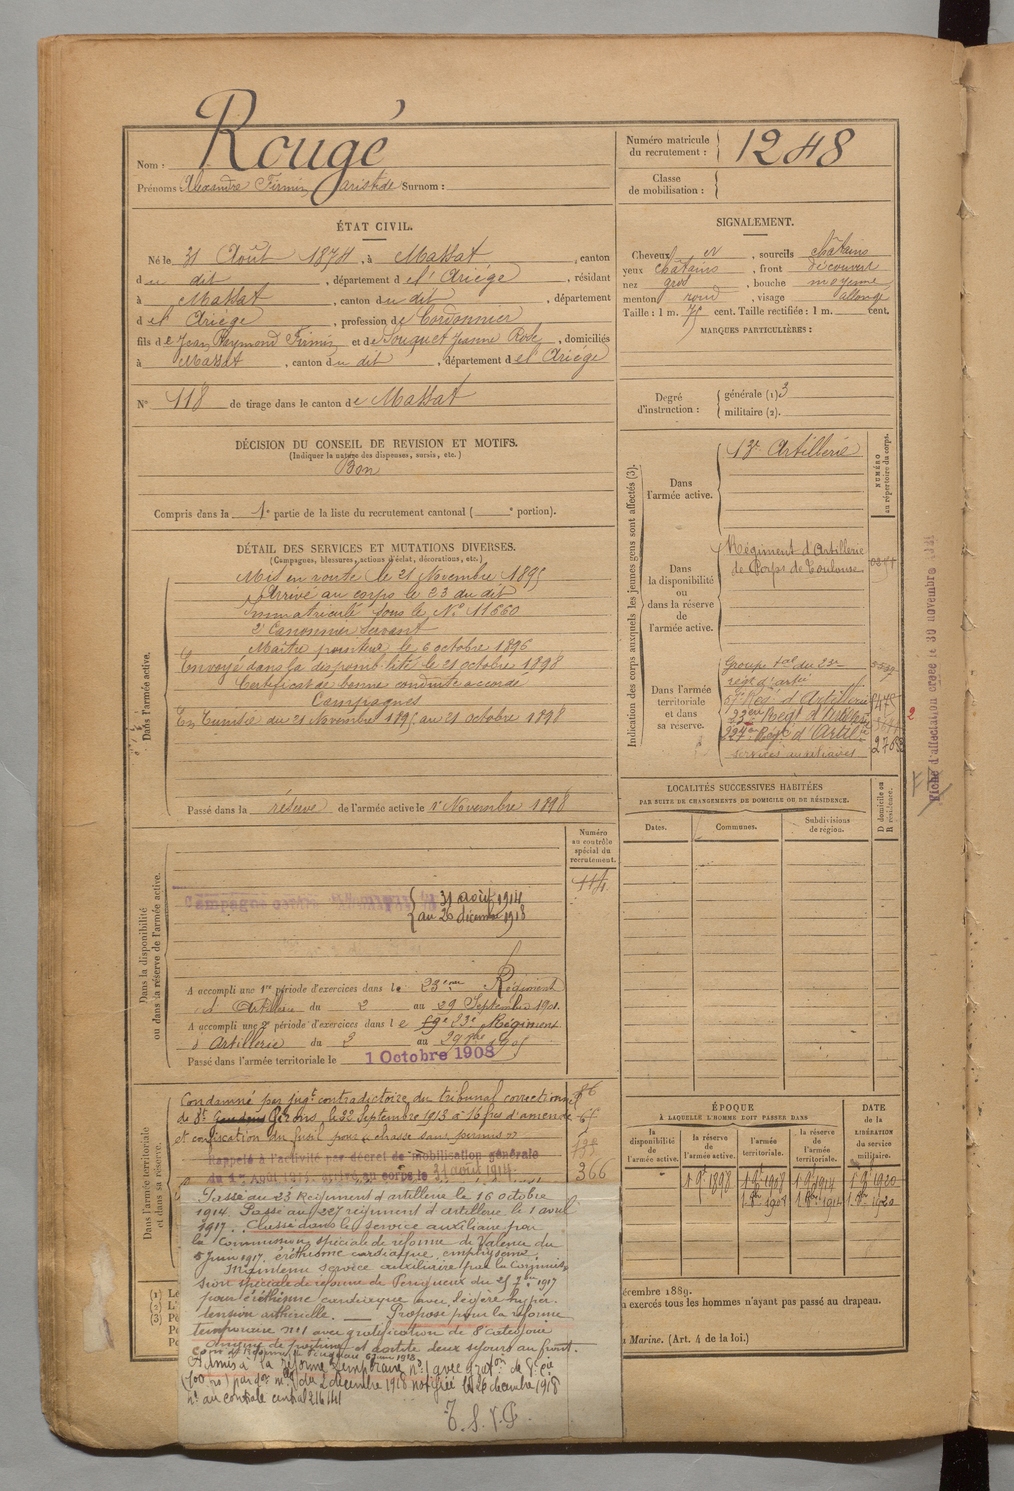 Nom : Rougé
Prénoms : Alexandre Firmin aristide Surnom :
Numéro matricule du recrutement : 1248
Classe de mobilisation :
ÉTAT CIVIL.
Né le 31 Août 1874, à Massat, canton
du dit, département de l'Ariége, résidant
à Massat, canton du dit, département
de l'Ariége, profession de Cordonnier
fils de Jean Raymond Firmin et de Souquet Jeanne Rose, domiciliés
à Massat, canton du dit, département de l'Ariége
N° 118 de tirage dans le canton de Massat
DÉCISION DU CONSEIL DE REVISION ET MOTIFS.
(Indiquer la nature des dispenses, sursis, etc.)
Bon
Compris dans la 1e partie de la liste du recrutement cantonal ( e portion).
SIGNALEMENT.
Cheveux et, sourcils châtains
yeux châtains, front découvert
nez gros, bouche moyenne
menton rond, visage allongé
Taille : 1 m. 75 cent. Taille rectifiée : 1 m. cent.
MARQUES PARTICULIÈRES :
Degré d'instruction : générale (1) 3
militaire (2).
Indication des corps auxquels les jeunes gens sont affectés (3).
NUMÉRO au répertoire du corps.
Dans l'armée active.
13e Artillerie
Dans la disponibilité ou dans la réserve de l'armée active.
Régiment d'Artillerie
de Corps de Toulouse
Dans l'armée territoriale et dans sa réserve.
Groupe tal du 23e
régt d'artie
57e Rég d'Artillerie
23e Regt d'Artillerie
Regt d'Artil
services auxiliaires
Fiche d'affectation créée le 30 novembre
DÉTAIL DES SERVICES ET MUTATIONS DIVERSES.
(Campagnes, blessures, actions d'éclat, décorations, etc.)
Dans l'armée active.
Mis en route le 21 Novembre 1895
Arrivé au corps le 23 du dit
Immatriculé sous le N° 11660
2e Canonnier servant
Maître pointeur le 6 octobre 1896
Envoyé dans la disponibilité le 21 octobre 1898
Certificat de bonne conduite accordé
Campagnes
En Tunisie du 21 Novembre 1895 au 21 octobre 1898
Passé dans la réserve de l'armée active le 1e Novembre 1898
LOCALITÉS SUCCESSIVES HABITÉES
PAR SUITE DE CHANGEMENTS DE DOMICILE OU DE RÉSIDENCE.
Dates.
Communes.
Subdivisions de région.
D domicile ou R résidence.
Numéro au contrôle spécial du recrutement.
114
Dans la disponibilité ou dans la réserve de l'armée active.
Campagne contre l'Allemagne du
31 août 1914
au 26 décembre 1918
A accompli une 1re période d'exercices dans le 23ème Régiment
d'Artillerie du 2 au 29 Septembre 1901
A accompli une 2e période d'exercices dans le 19e 23e Régiment
d'Artillerie du 2 au 29
Passé dans l'armée territoriale le 1 Octobre 1908
Dans l'armée territoriale et dans sa réserve.
Condamné par jugt contradictoire du tribunal correctionnel
de St Gaudens Girons, le 22 Septembre 1913 à 16 frs d'amende
et confiscation du fusil pour « chasse sans permis »
366
Rappelé à l'activité par décret de mobilisation générale
du 1er Août 1914. arrivé au corps le 31 août 1914.
Passé au 23 Régiment d'artillerie le 16 octobre
1914. Passé au 227 régiment d'artillerie le 1 avril
1917. Classé dans le service auxiliaire par
la Commission spéciale de réforme de Valence du
5 juin 1917. éréthisme cardiaque, emphysème
Maintenu service auxiliaire par la Commis
sion spéciale de réforme de Périgueux du 25 7bre 1917
pour éréthisme cardiaque avec légère hyper
tension artérielle. — Proposé pour la réforme
temporaire n°1 avec gratification de 8e catégorie
et astite deux séjours au front.
Admis à la réforme temporaire n°1 avec graton de 8e cie
du 2 décembre 1918 notifiée le 26 décembre 1918
n° au contrôle central 216141
T. S. V. P.
ÉPOQUE
À LAQUELLE L'HOMME DOIT PASSER DANS
la disponibilité de l'armée active.
la réserve de l'armée active.
l'armée territoriale.
la réserve de l'armée territoriale.
DATE de la LIBÉRATION du service militaire.
décembre 1889.
exercés tous les hommes n'ayant pas passé au drapeau.
Marine. (Art. 4 de la loi.)